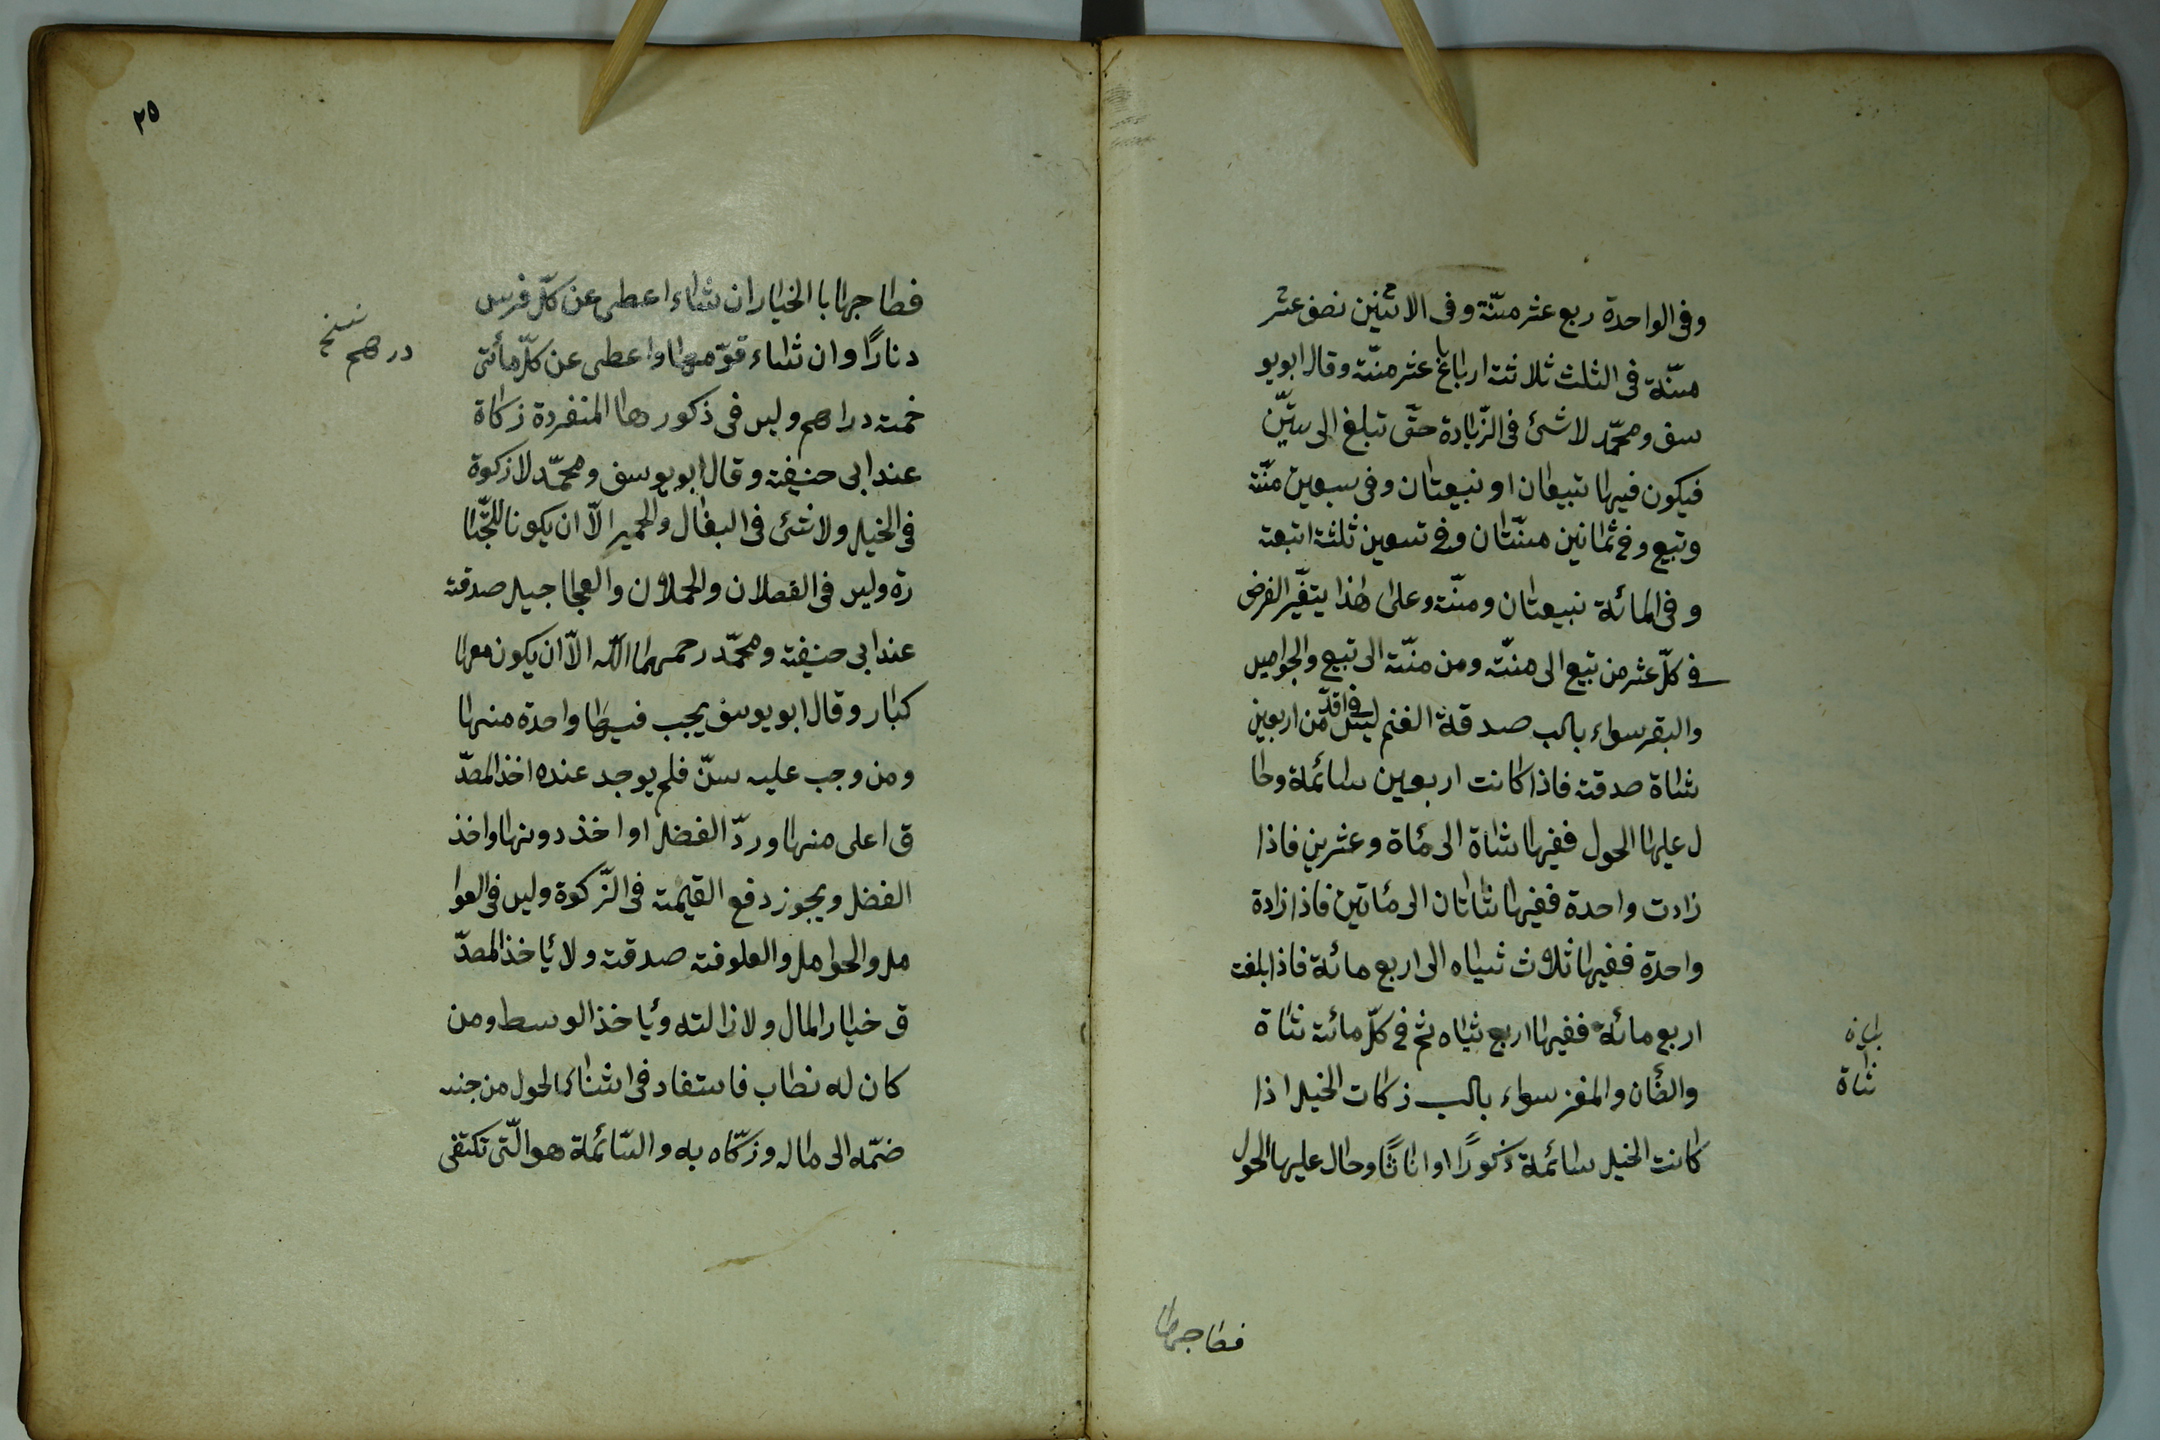 وفى الواحدة ربع عشر منّة وفى الاثنين نصف عشر
منّة فى الثلث ثلاثة ارباع عشر منّة وقال ابويو
سف ومحمّد لا شئ فى الزّيادة حتّى تبلغ الى ستّين
فيكون فيها تبيعان او تبيعتان وفى سبعين منّة
وتبيع وفى ثمانين منّتان وفى تسعين ثلثة اتبعة
وفى المائة تبيعتان ومنّة وعلى هٰذا يتغّير الفرض
فى كلّ عشر من تبيع الى منّة ومن منّة الى تبيع والجواميس
والبقر سواء باب صدقة الغنم ليس فى اقلّ من اربعين
شاة صدقة فاذا كانت اربعين سائمة وحا
ل عليها الحول ففيها شاة الى مأة وعشرين فاذا
زادت واحدة ففيها شاتان الى مأتين فاذا زادة
واحدة ففيها ثلاث شياه الى اربع مائة فاذا بلغت
اربع مائة ففيها اربع شياه ثم فى كلّ مائة شاة
شاة
والضّأن والمغز سواء باب زكات الخيل اذا
كانت الخيل سائمة ذكورًا او اناثًا وحال عليها الحول
فصاجها
٢٥
فصاجها با الخياران شاء اعطى عن كلّ فرس
دنارًا وان شاء قوّمها واعطى عن كلّ مأتى
درهم نسخ
خمسة دراهم وليس فى ذكورها المنفردة زكاة
عند ابى حنيفة وقال ابو يوسف ومحمّد لا زكوة
فى الخيل ولا شئ فى البغال والحمير الّا ان يكونا للتّجا
رة وليس فى الفصلان والحملان والعجاجيل صدقة
عند ابى حنيفة ومحمّد رحمهما اللّه الّا ان يكون معها
كبار وقال ابو يوسف يجب فيها واحدة منها
ومن وجب عليه سنّ فلم يوجد عنده اخذ المصدّ
ق اعلى منها وردّ الفضل او اخذ دونها واخذ
الفضل ويجوز دفع القيمة فى الزّكوة وليس فى العوا
مل والحوامل والعلوفة صدقة ولا يأخذ المصدّ
ق خيار المال ولا رذالته ويأخذ الوسط ومن
كان له نصاب فاستفاد فى اثناء الحول من جنسه
ضمّه الى ماله وزكّاه به والسّائمة هو الّتى تكتفى